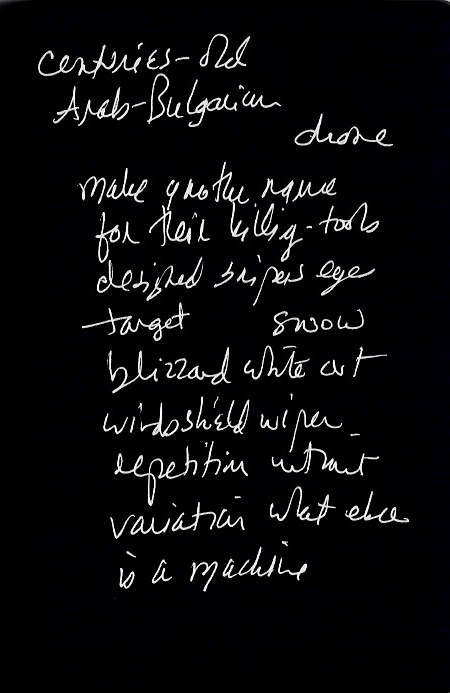 centuries-old
Arab-Bulgarian
drone
make another name
for their killing-tools
designed snipers eye
target snow
blizzard white out
windshield wiper
repetition without
variation what else
is a machine